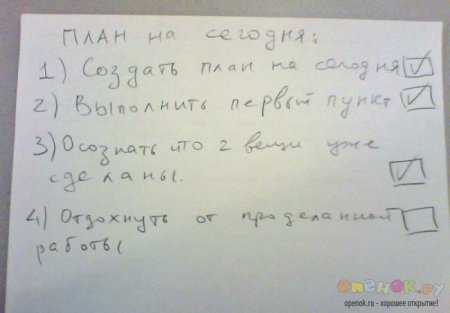 ПЛАН на сегодня:
1) Создать план на сегодня
2) Выполнить первый пункт
3) Осознать что 2 вещи уже
сделаны.
4) Отдохнуть от проделанной
работы
опенок.ру
openok.ru - хорошее открытие!